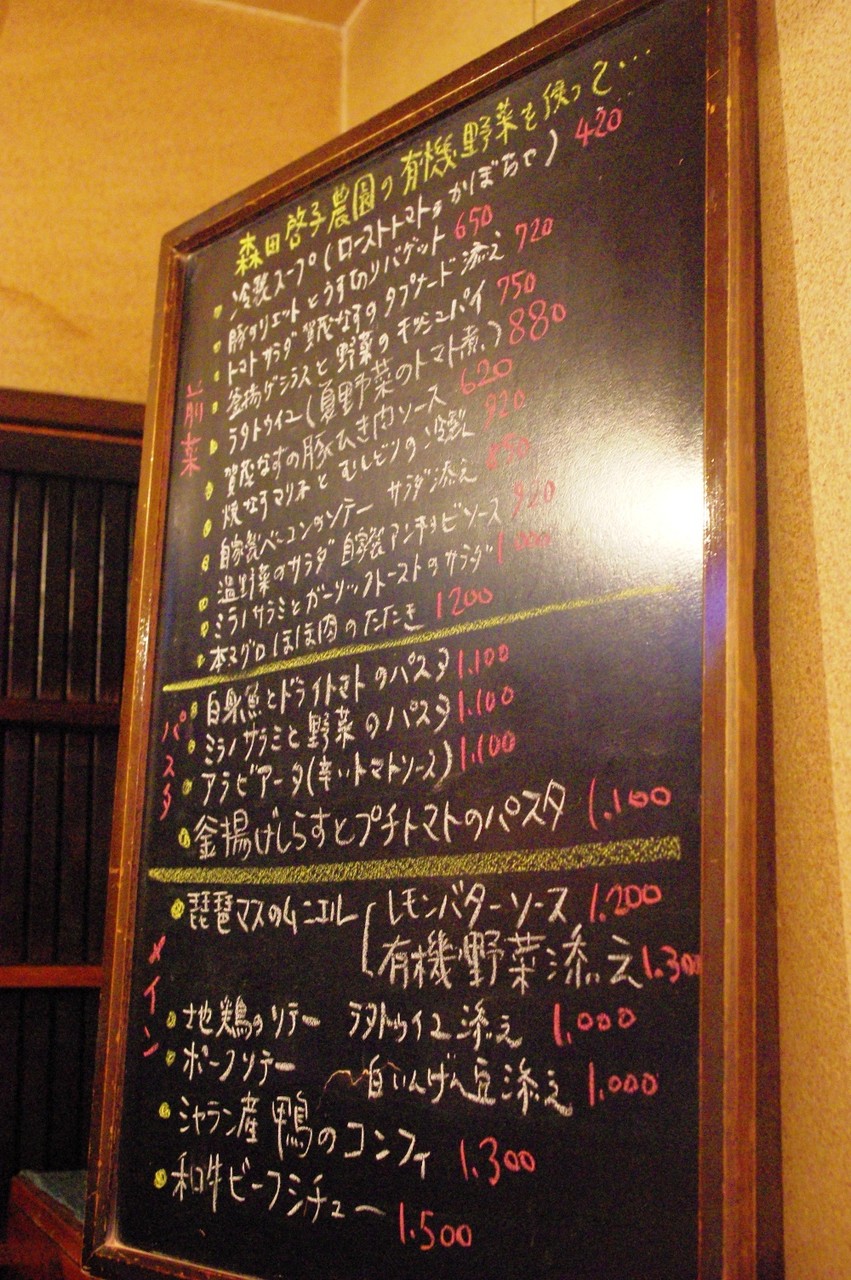 森田啓子農園の有機野菜を使って…
前菜
冷製スープ(ローストトマトorかぼちゃ) 420
豚のリエットとうすめりバゲット 650
トマトサラダ 賀茂なすのタプナード添え 720
釜揚ゲシラスと野菜のキッシュパイ 750
ラタトゥイユ(夏野菜のトマト煮) 880
賀茂なすの豚ひき肉ソース 620
焼なすマリネとむしどりの冷製 920
自家製ベーコンのソテー サラダ添え 850
温野菜のサラダ 自家製アンチョビソース 920
ミラノサラミとガーリックトーストのサラダ 1.000
本マグロほほ肉のたたき 1200
パスタ
白身魚とドライトマトのパスタ 1.100
ミラノサラミと野菜のパスタ 1.100
アラビアータ(辛いトマトソース) 1.100
釜揚げしらすとプチトマトのパスタ 1.100
メイン
琵琶マスのムニエル レモンバターソース 1.200
有機野菜添え 1.300
地鶏のソテー ラタトゥイユ添え 1.000
ポークソテー 白いんげん豆添え 1.000
シャラン産鴨のコンフィ 1.300
和牛ビーフシチュー 1.500